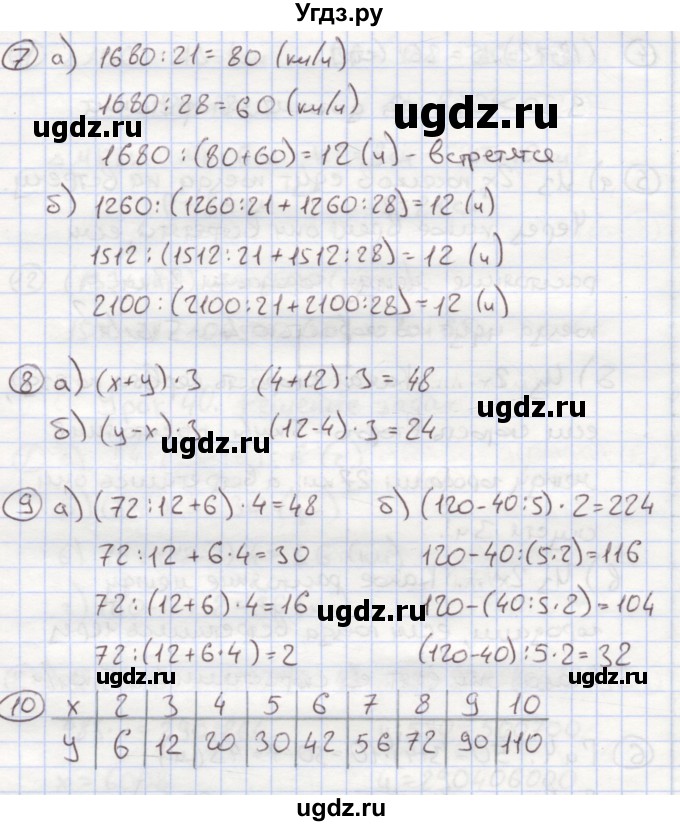 Угдз.ру
7 а) 1680:21 = 80 (км/ч)
1680:28 = 60 (км/ч)
ugdz.ru
ugdz.ru
1680:(80+60) = 12 (ч) - встретятся
б) 1260:(1260:21+1260:28) = 12 (ч)
1512:(1512:21+1512:28) = 12 (ч)
2100:(2100:21+2100:28) = 12 (ч)
8 а) (x+y)·3 (4+12)·3 = 48
ugdz.ru
б) (y-x)·3 (12-4)·3 = 24
ugdz.ru
9 а) (72:12+6)·4 = 48 б) (120-40:5)·2 = 224
72:12+6·4 = 30 120-40:(5·2) = 116
72:(12+6)·4 = 16 120-(40:5·2) = 104
ugdz.ru
72:(12+6·4) = 2 (120-40):5·2 = 32
ugdz.ru
ugdz.ru
10 x 2 3 4 5 6 7 8 9 10
y 6 12 20 30 42 56 72 90 110
ugdz.ru